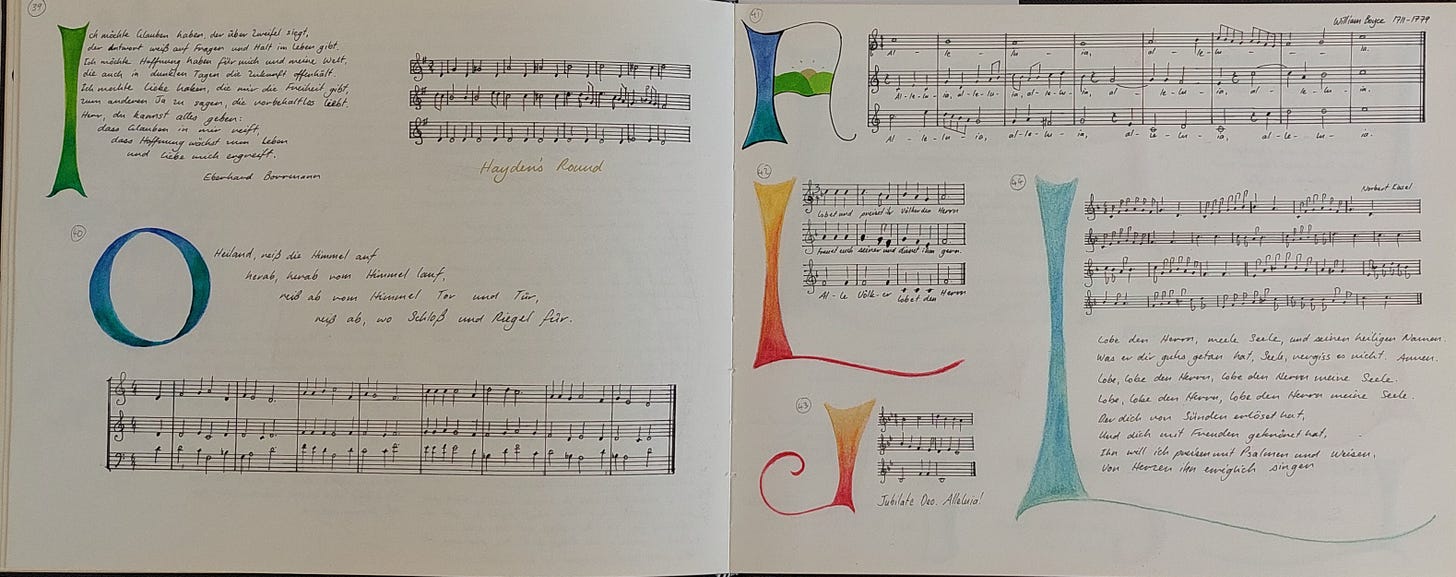 39
Ich möchte Glauben haben, der über Zweifel siegt,
der Antwort weiß auf Fragen und Halt im Leben gibt.
Ich möchte Hoffnung haben für mich und meine Welt,
die auch in dunklen Tagen die Zukunft offenhält.
Ich möchte Liebe haben, die mir die Freiheit gibt,
zum anderen Ja zu sagen, die vorbehaltlos liebt.
Herr, du kannst alles geben:
dass Glauben in mir reift,
dass Hoffnung wächst zum Leben
und Liebe mich ergreift.
Eberhard Borrmann
Hayden's Round
40
O Heiland, reiß die Himmel auf
herab, herab vom Himmel lauf,
reiß ab vom Himmel Tor und Tür,
reiß ab, wo Schloß und Riegel für.
41
William Boyce 1711-1779
Al - le - lu - ia, al - le - lu - ia.
Al - le - lu - ia, al - le - lu - ia, al - le - lu - ia, al - le - lu - ia.
Al - le - lu - ia, al - le - lu - ia, al - le - lu - ia, al - le - lu - ia.
42
Lobet und preiset ihr Völker den Herrn
freuet euch seiner und dienet ihm gern.
Al - le Völk - er lobet den Herrn
43
Jubilate Deo. Alleluia!
44
Norbert Kissel
Lobe den Herrn, meele Seele, und seinen heiligen Namen.
Was er dir guhs getan hat, Seele, vergiss es nicht. Amen.
Lobe, lobe den Herrn, lobe den Herrn meine Seele.
Lobe, lobe den Herrn, lobe den Herrn meine Seele.
Der dich von Sünden erlöset hat,
Und dich mit Freuden gekrönet hat,
Ihn will ich preisen mit Psalmen und Weisen,
Von Herzen ihm ewiglich singen